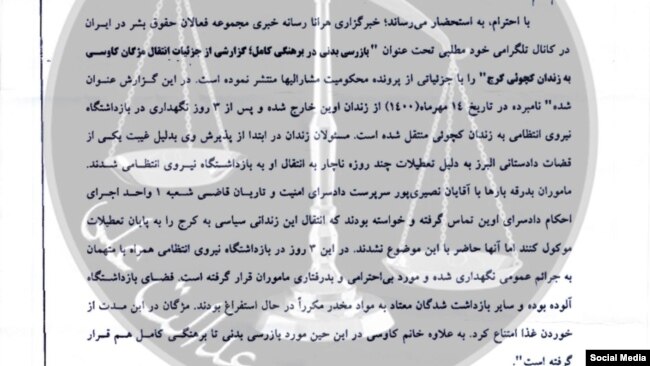 با احترام، به استحضار می‌رساند؛ خبرگزاری هرانا رسانه خبری مجموعه فعالان حقوق بشر در ایران
در کانال تلگرامی خود مطلبی تحت عنوان "بازرسی بدنی در برهنگی کامل؛ گزارشی از جزئیات انتقال مژگان کاوسی
به زندان کچوئی کرج" را با جزئیاتی از پرونده محکومیت مشارالیها منتشر نموده است. در این گزارش عنوان
شده" نامبرده در تاریخ ۱۴ مهرماه(۱۴۰۰) از زندان اوین خارج شده و پس از ۳ روز نگهداری در بازداشتگاه
نیروی انتظامی به زندان کچوئی منتقل شده است. مسئولان زندان در ابتدا از پذیرش وی بدلیل غیبت یکی از
قضات دادستانی البرز به دلیل تعطیلات چند روزه ناچار به انتقال او به بازداشتگاه نیروی انتظامی شدند.
ماموران بدرقه بارها با آقایان نصیری‌پور سرپرست دادسرای امنیت و تاریان قاضی شعبه ۱ واحد اجرای
احکام دادسرای اوین تماس گرفته و خواسته بودند که انتقال این زندانی سیاسی به کرج را به پایان تعطیلات
موکول کنند اما آنها حاضر با این موضوع نشدند. در این ۳ روز در بازداشتگاه نیروی انتظامی همراه با متهمان
به جرائم عمومی نگهداری شده و مورد بی‌احترامی و بدرفتاری ماموران قرار گرفته است. فضای بازداشتگاه
آلوده بوده و سایر بازداشت شدگان معتاد به مواد مخدر مکرراً در حال استفراغ بودند. مژگان در این مدت از
خوردن غذا امتناع کرد. به علاوه خانم کاوسی در این حین مورد بازرسی بدنی تا برهنگی کامل هم قرار
گرفته است".
عدالت علی
Social Media